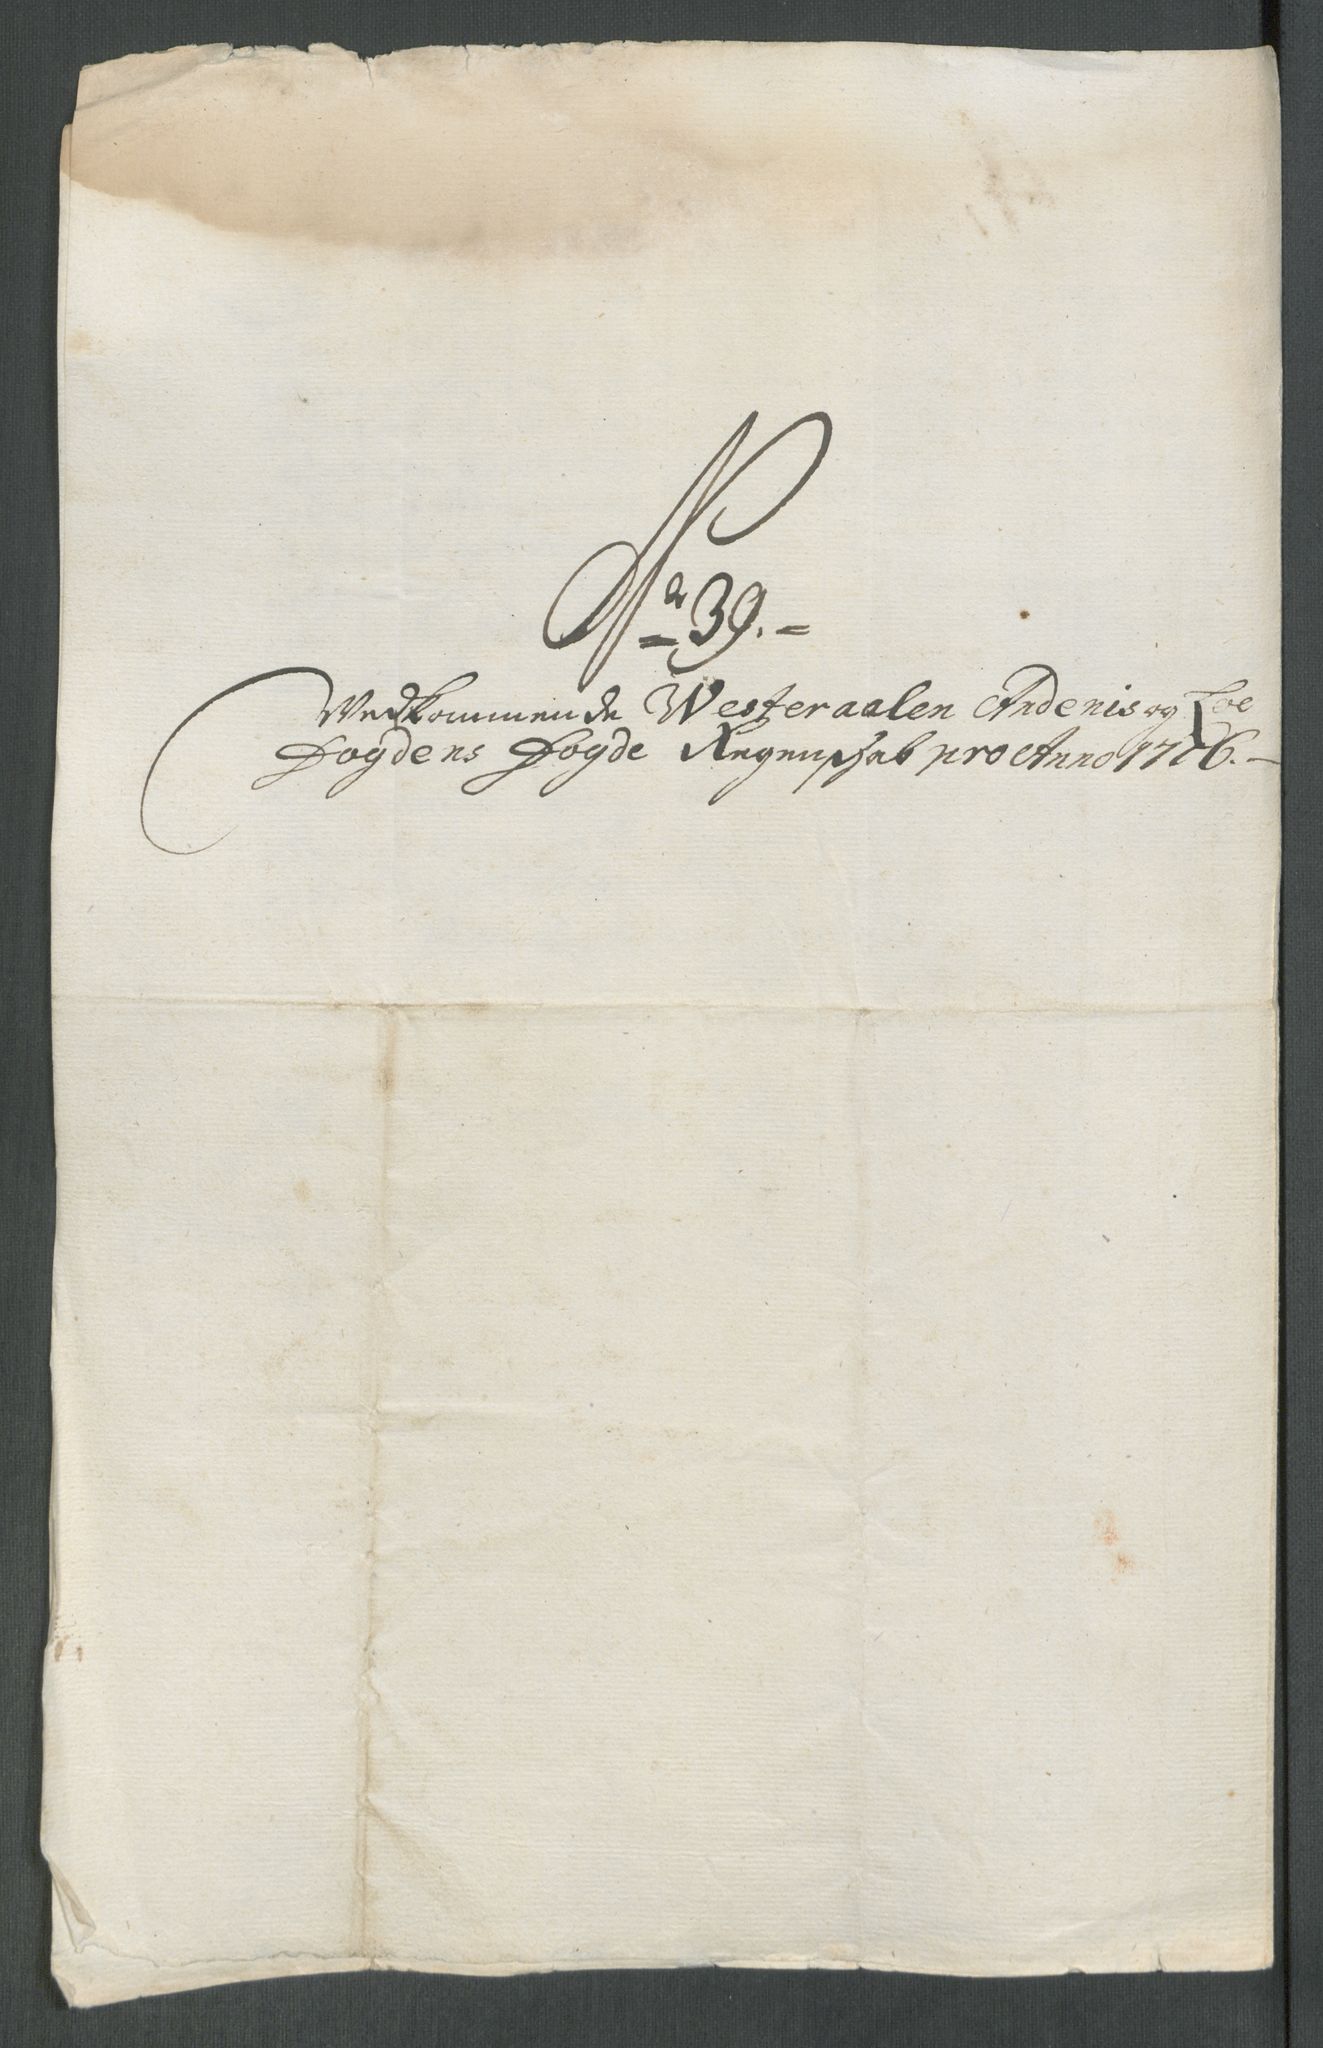 No 39.
Vedkommende Westeraalen Andenis og Loe
Fogdens Fogde Regenskab pro Anno 1716.